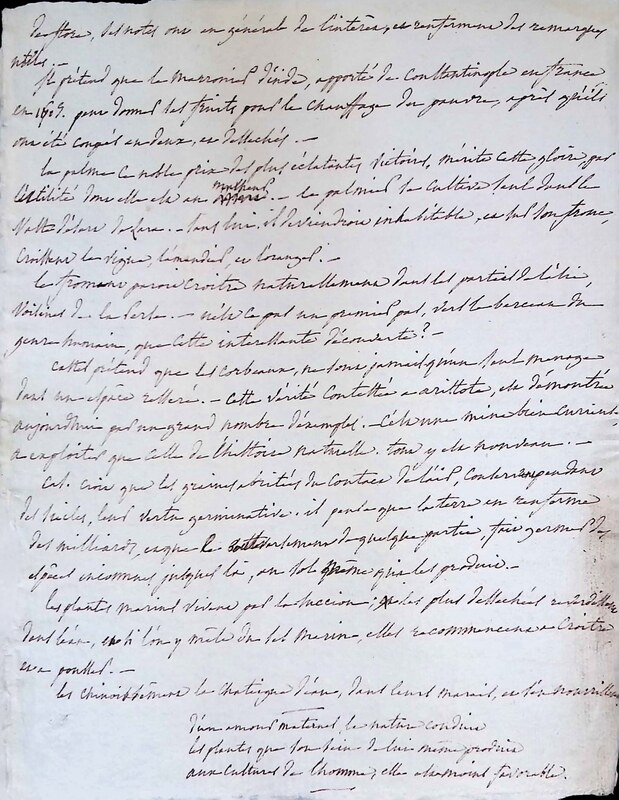 de flore, des notes ont en général de l'intérêt, et renferment des remarques
utiles. —
il prétend que le marronier d'inde, apporté de Constantinople en france
en peut donner ses fruits pour le chauffage du pauvre, après qu'ils
ont été coupés en deux, et dessechés. —
la palme ce noble prix des plus éclatantes victoires, mérite cette gloire, par
l'utilité dont elle est au malheur. — le palmier se cultive seul dans le
vaste désert de Zara. — sans lui, il deviendroit inhabitable, et sur son tronc,
croissent la vigne, l'amandier, et l'oranger. —
le froment paroit croitre naturellement dans les parties de l'asie,
voisines de la Perse. — n'est ce pas un premier pas, vers le berceau du
genre humain, que cette interessante découverte? —
Castel prétend que les corbeaux, ne sont jamais qu'un seul menage
dans un espace resserré. — cette vérité contestée a aristote, est démontrée
aujourdhui par un grand nombre d'exemples. — C'est une mine bien curieuse
a exploiter que celle de l'histoire naturelle. tout y est nouveau. —
Cas. croit que les graines abritées du contact de l'air, conservent pendant
des siecles, leur vertu germinative. il pense que la terre en renferme
des milliards, et que le bouleversement de quelque partie, fait germer des
espèces inconnues jusques là, au sol même qui les produit. —
les plantes marines vivent par la succion; les plus dessechées reverdissent
dans l'eau, et si l'on y mêle du sel marin, elles recommencent a croitre
et a pousser. —
les chinois sèment la chataigne d'eau, dans leurs marais, et s'en nourrissent
d'un amour maternel la nature conduit
les plants que son sein de lui même produit
aux cultures de l'homme, elle est moins favorable. —